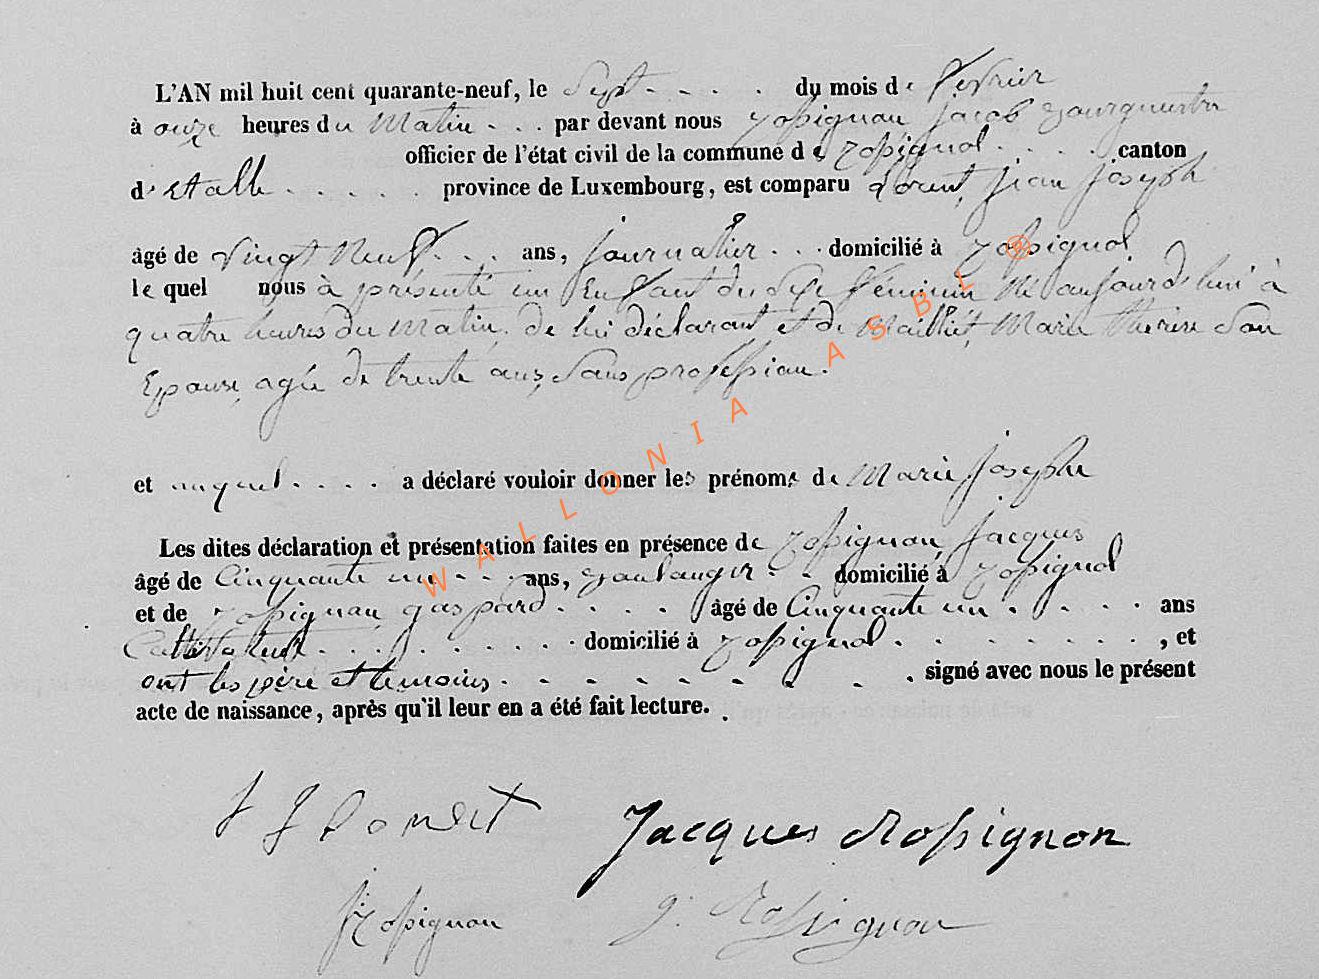 L'AN mil huit cent quarante-neuf, le Sept du mois de fevrier
à onze heures du Matin par devant nous Rossignon Jacob Bourguestre
officier de l'état civil de la commune de Rossignol canton
d'Etalle province de Luxembourg, est comparu Jean Joseph
âgé de vingt neuf ans, journalier domicilié à Rossignol
le quel nous à présenté un Enfant du sexe féminin né aujourd'hui à
quatre heures du matin, de lui déclarant et de Mailliet, Marie thérèse Son
Epouse, agée de trente ans, Sans profession.
et auquel a déclaré vouloir donner les prénoms de Marie Josephe
Les dites déclaration et présentation faites en présence de Rossignon, Jacques
âgé de Cinquante un ans, Boulanger domicilié à Rossignol
et de Rossignon gaspard âgé de Cinquante un ans
Cultivateur domicilié à Rossignol , et
ont les père et temoins signé avec nous le présent
acte de naissance, après qu'il leur en a été fait lecture.
J J
Jacques Rossignon
J Rossignon
g. Rossignon
WALLONIA ASBL ®